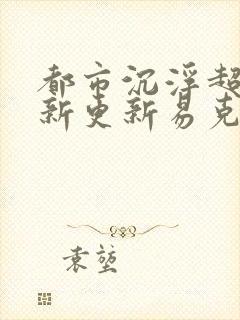 都市沉浮超
新更新易克
袁堃